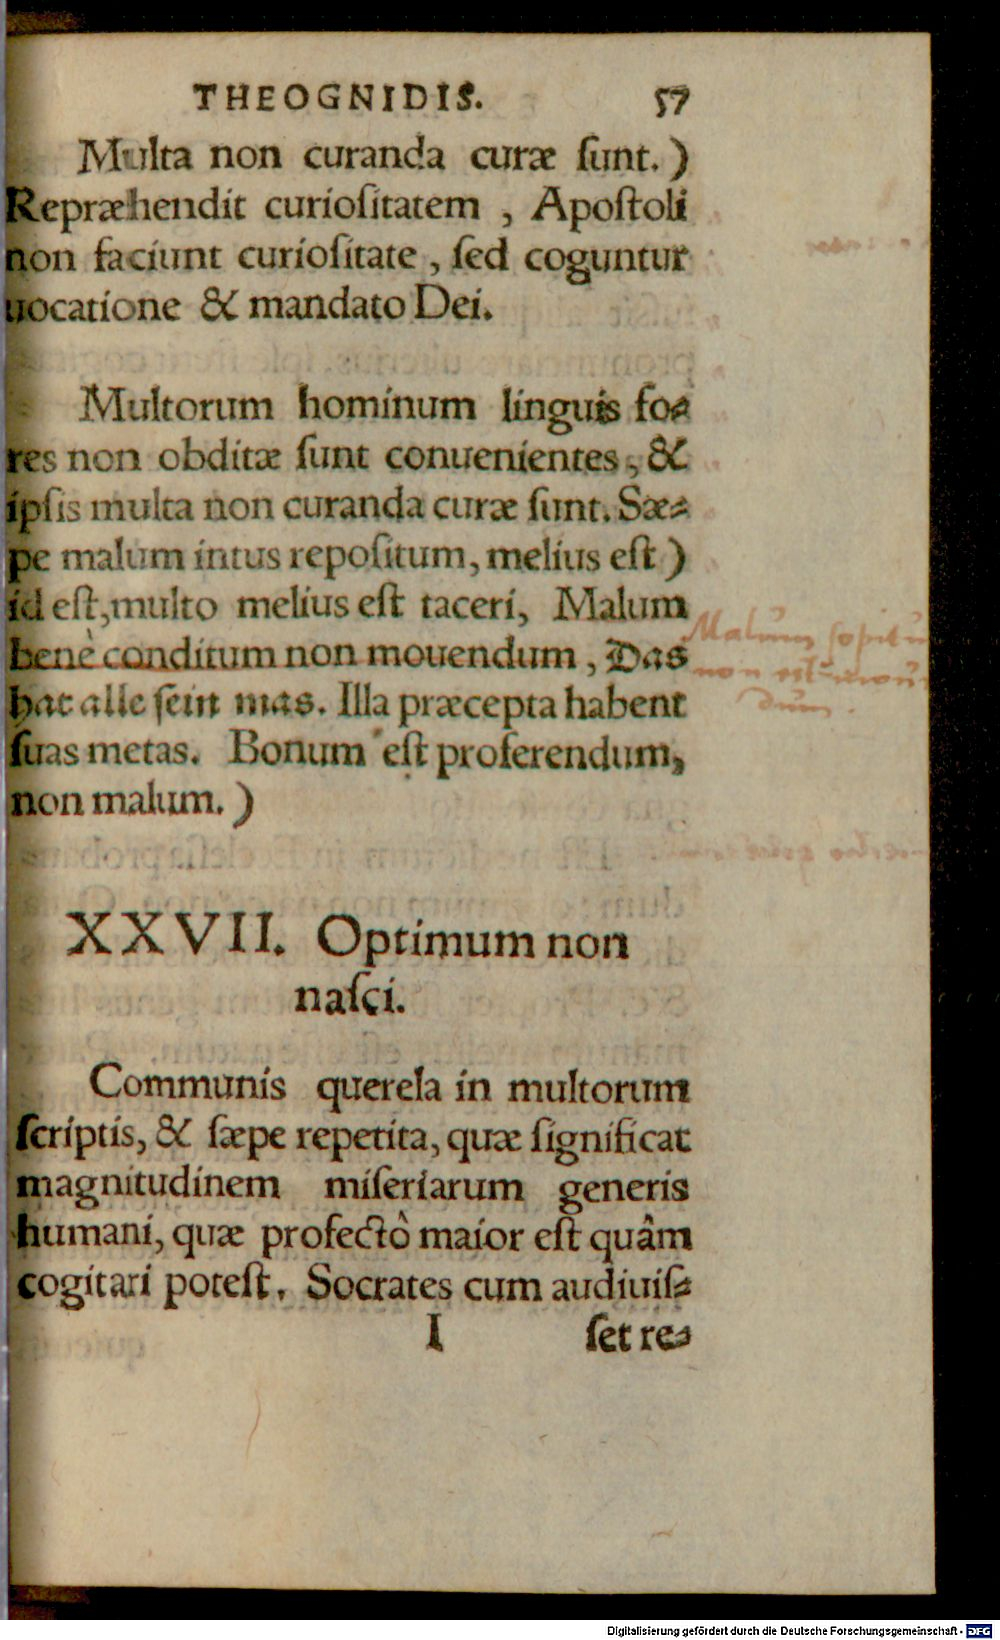 THEOGNIDIS. 57
Multa non curanda curæ ſunt.)
Repræhendit curioſitatem , Apoſtoli
non faciunt curioſitate , ſed coguntur
uocatione & mandato Dei.
Multorum hominum linguis fo⸗
res non obditæ ſunt conuenientes, &
ipſis multa non curanda curæ ſunt. Sæ⸗
pe malum intus repoſitum, melius eſt )
id eſt, multo melius eſt taceri, Malum
benè conditum non mouendum, Das
hat alle ſein mas. Illa præcepta habent
ſuas metas. Bonum eſt proferendum,
non malum. )
Malum ſopitũ
non est mouẽ
dum.
XXVII. Optimum non
naſci.
Communis querela in multorum
ſcriptis, & ſæpe repetita, quæ ſignificat
magnitudinem miſeriarum generis
humani, quæ profectò maior eſt quâm
cogitari poteſt. Socrates cum audiuiſ⸗
I ſet re⸗
Digitalisierung gefördert durch die Deutsche Forschungsgemeinschaft - DFG